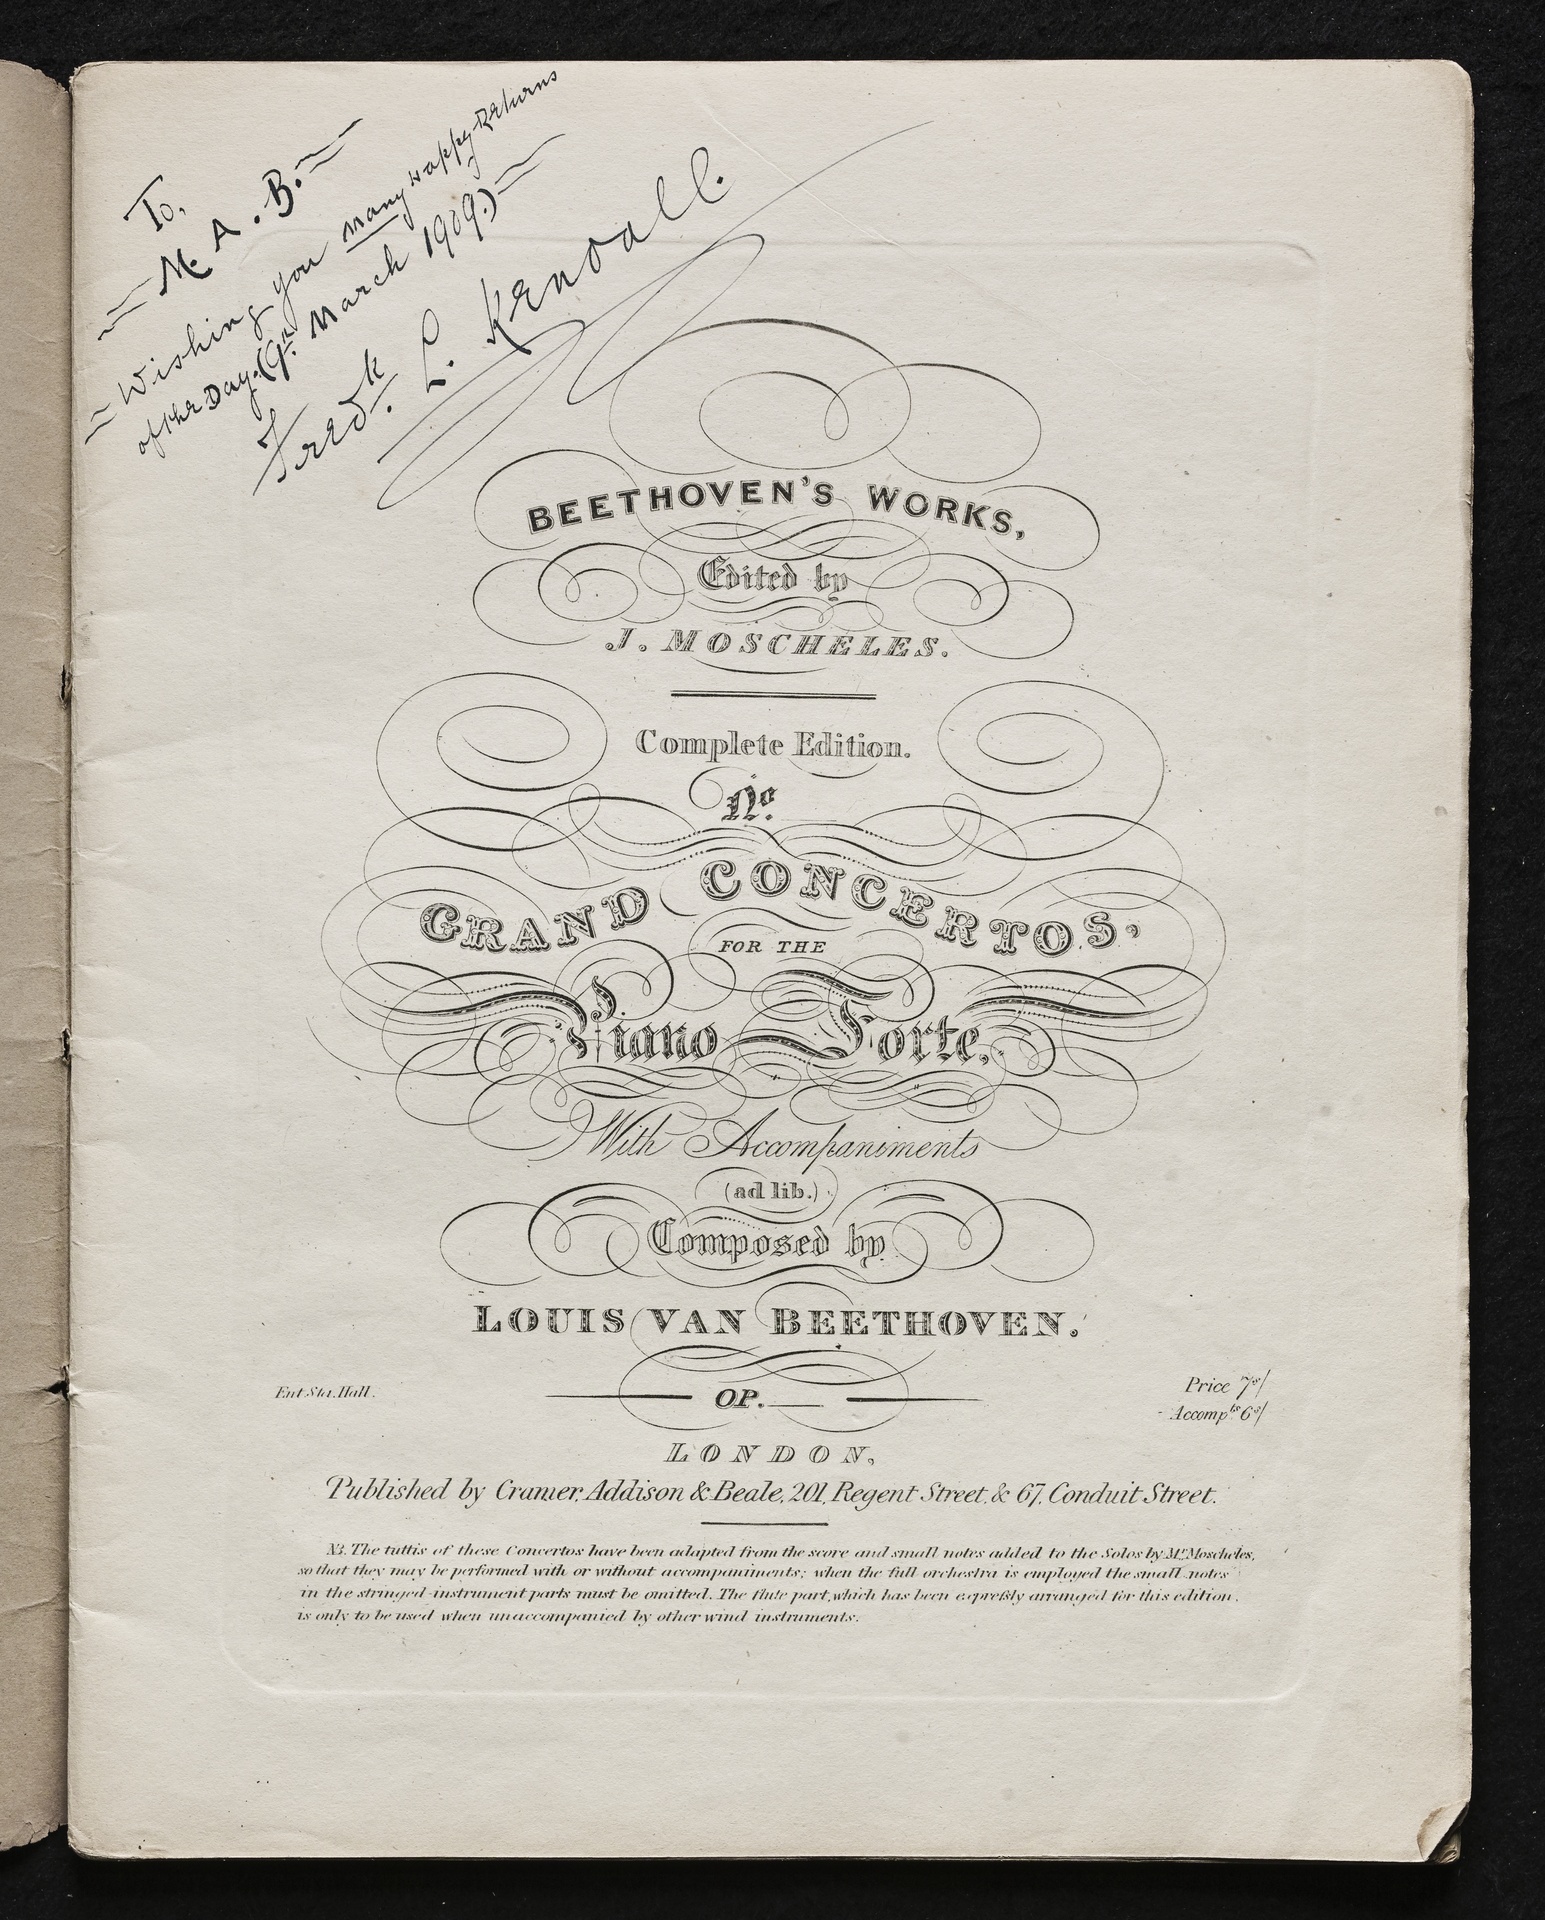 To,
M. A. B.
Wishing you many Happy Returns
of the Day. (9th March 1909.)
Fredk. L. Kendall.
BEETHOVEN'S WORKS,
Edited by
J. MOSCHELES.
Complete Edition.
No.
GRAND CONCERTOS,
FOR THE
Piano Forte,
With Accompaniments
(ad lib.)
Composed by
LOUIS VAN BEETHOVEN.
Ent. Sta. Hall.
OP.
Price 7s/
Accompts 6s/
LONDON,
Published by Cramer, Addison & Beale, 201, Regent Street, & 67, Conduit Street.
NB. The tuttis of these Concertos have been adapted from the score and small notes added to the Solos by Mr Moscheles,
so that they may be performed with or without accompaniments; when the full orchestra is employed the small notes
in the stringed instrument parts must be omitted. The flute part, which has been expreſsly arranged for this edition,
is only to be used when unaccompanied by other wind instruments.